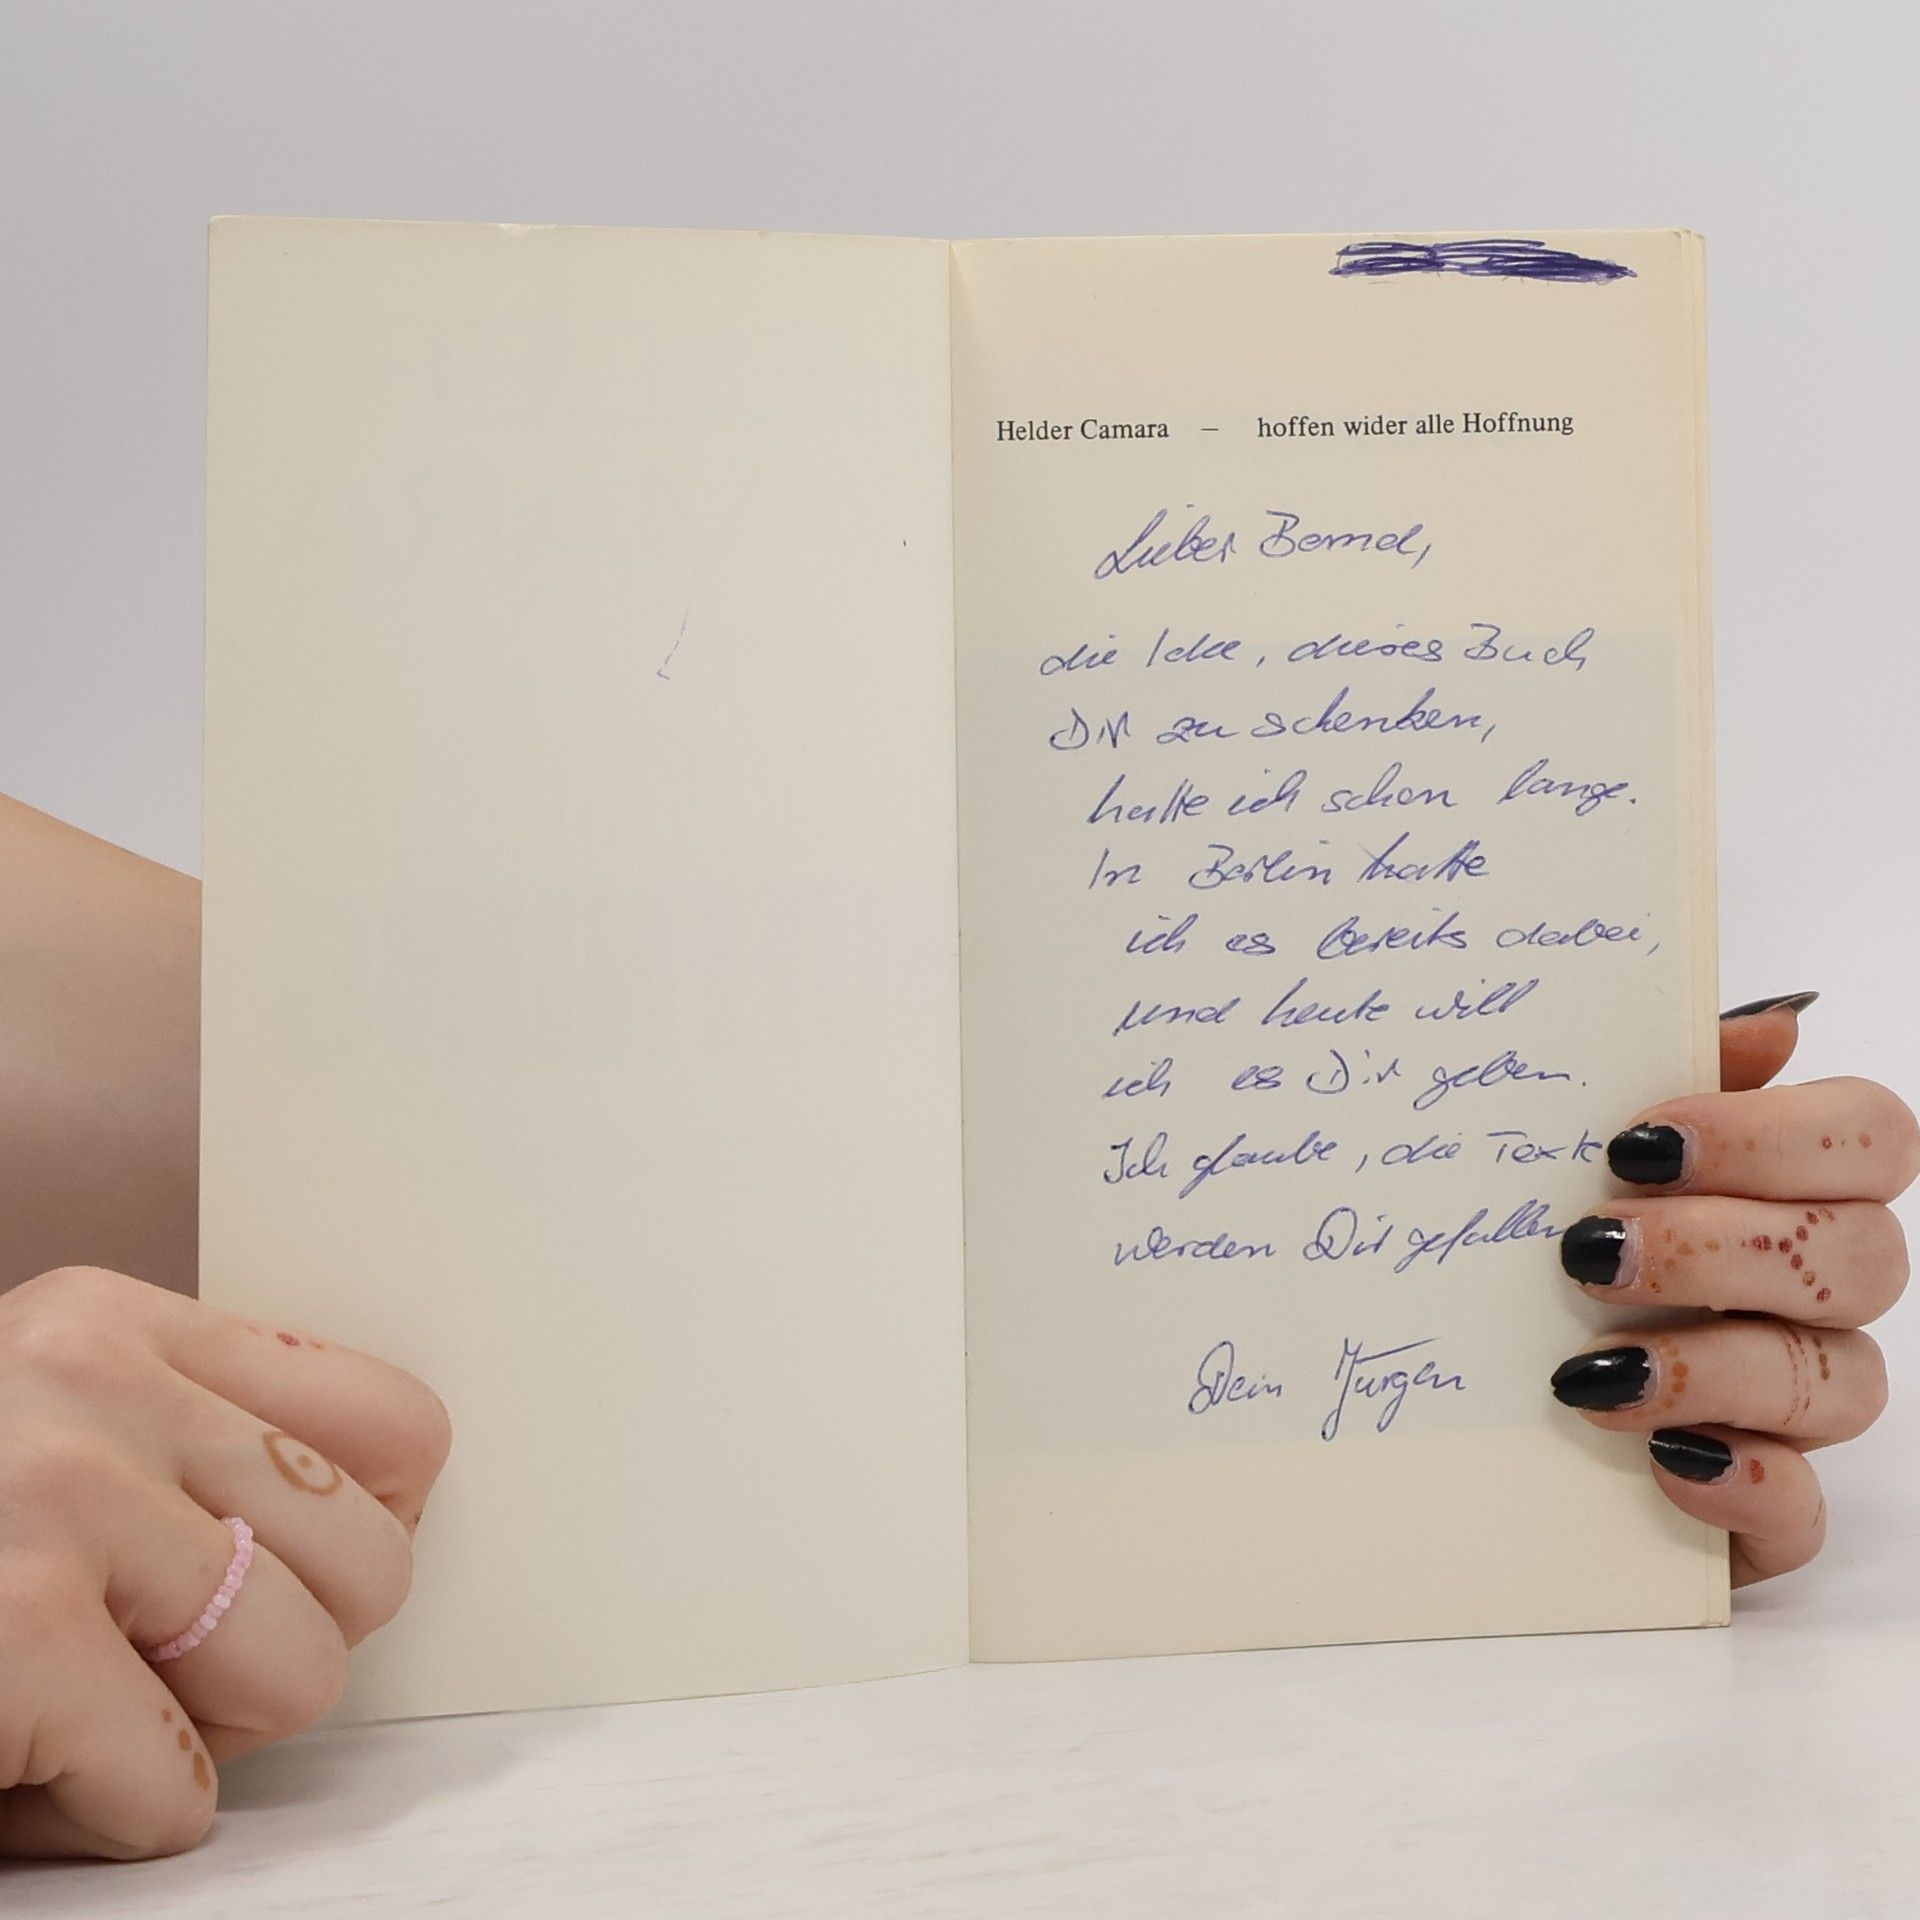 Helder Camara – hoffen wider alle Hoffnung
Lieber Bernd,
die Idee, dieses Buch
Dir zu schenken,
hatte ich schon lange.
In Berlin hatte
ich es bereits dabei,
und heute will
ich es Dir geben.
Ich glaube, die Texte
werden Dir gefallen
Dein Jürgen